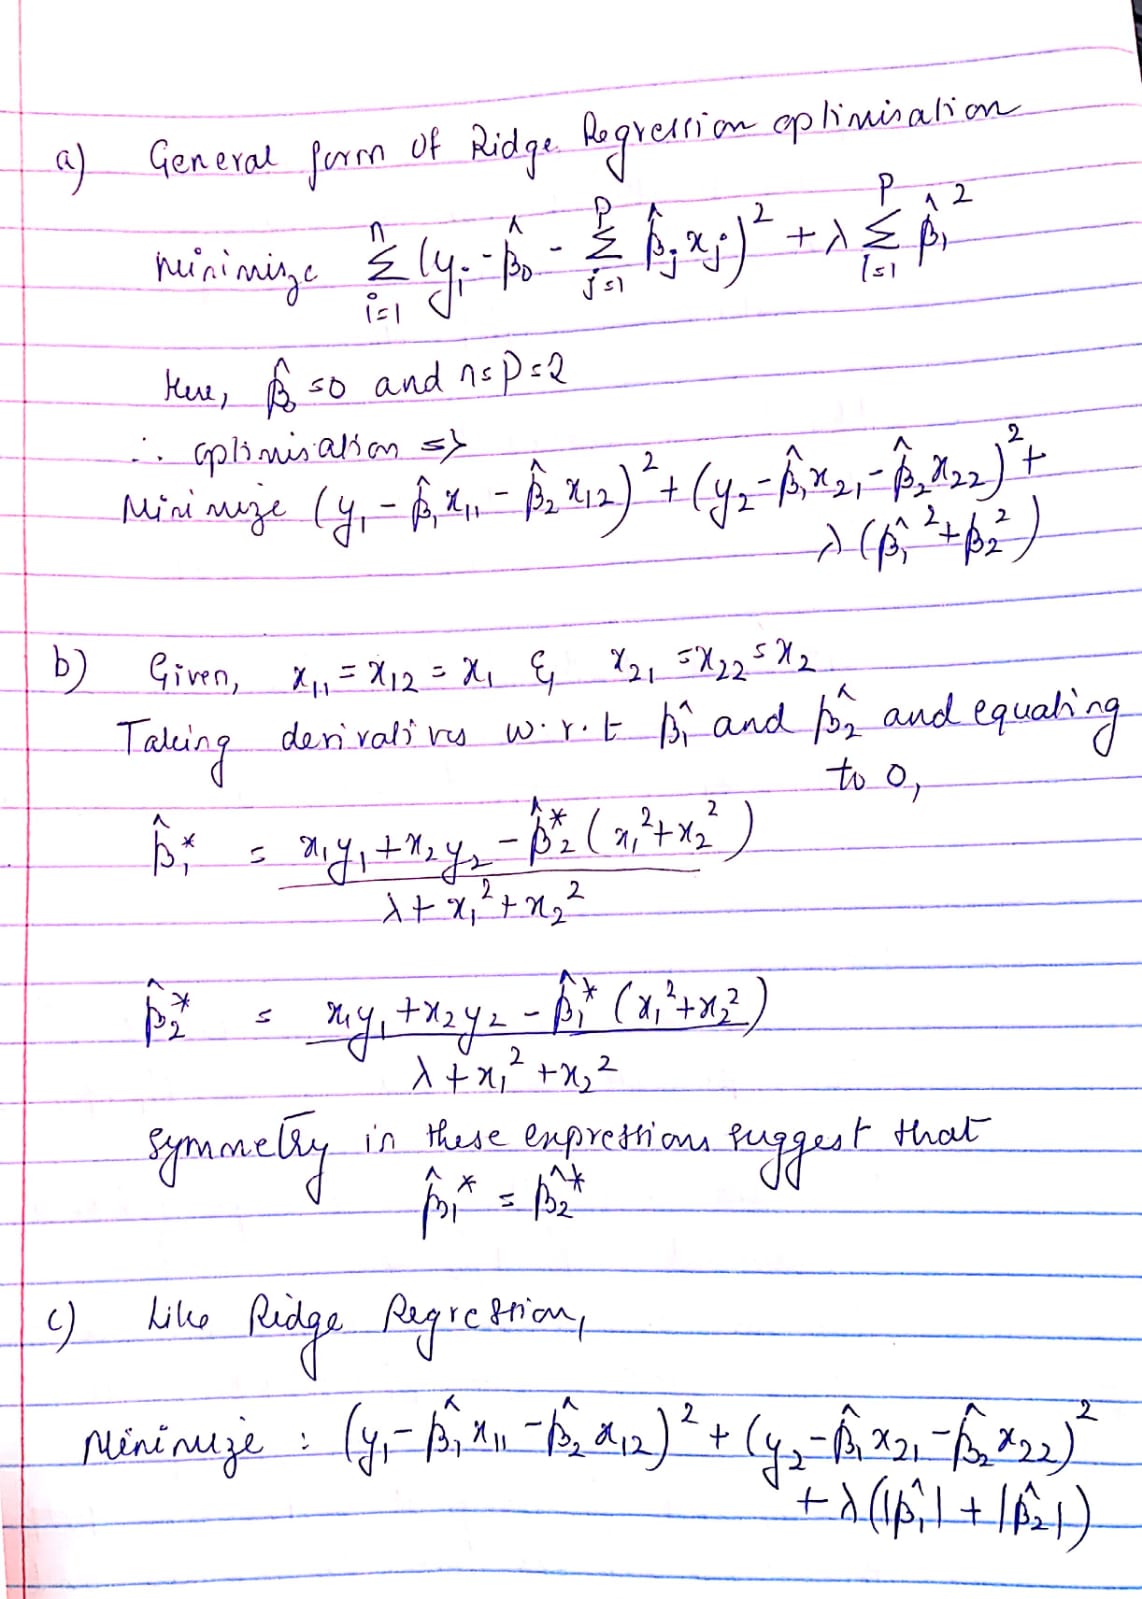 a) General form of Ridge Regression optimisation
minimize Σ_{i=1}^{n} (y_i - β̂_0 - Σ_{j=1}^{p} β̂_j x_j)^2 + λ Σ_{i=1}^{p} β̂_i^2
Here, β̂_0 = 0 and n=p=2
∴ optimisation =>
Minimize (y_1 - β̂_1 x_11 - β̂_2 x_12)^2 + (y_2 - β̂_1 x_21 - β̂_2 x_22)^2 +
λ (β̂_1^2 + β̂_2^2)
b) Given, x_11 = x_12 = x_1 & x_21 = x_22 = x_2
Taking derivatives w.r.t β̂_1 and β̂_2 and equating
to 0,
β̂_1^* = (x_1 y_1 + x_2 y_2 - β̂_2^* (x_1^2 + x_2^2)) / (λ + x_1^2 + x_2^2)
β̂_2^* = (x_1 y_1 + x_2 y_2 - β̂_1^* (x_1^2 + x_2^2)) / (λ + x_1^2 + x_2^2)
Symmetry in these expressions suggest that
β̂_1^* = β̂_2^*
c) Like Ridge Regression,
Minimize : (y_1 - β̂_1 x_11 - β̂_2 x_12)^2 + (y_2 - β̂_1 x_21 - β̂_2 x_22)^2
+ λ (|β̂_1| + |β̂_2|)